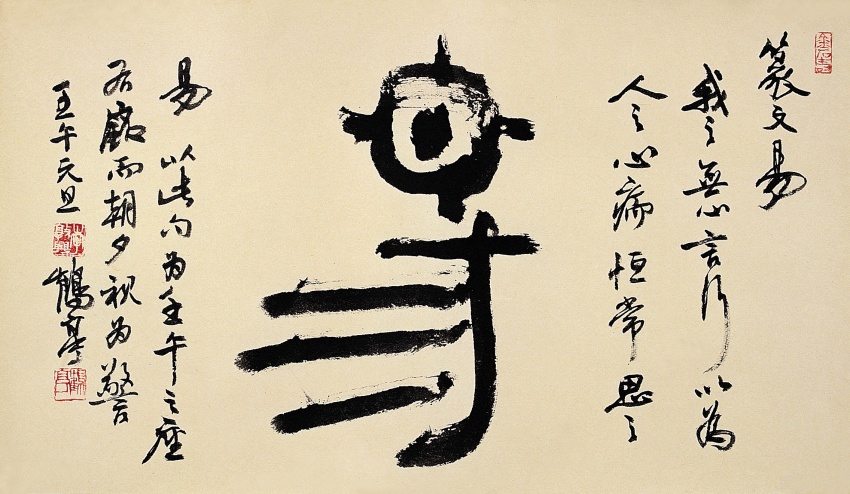 篆文易
我之無心言行以為
人之心痛恒常思之
易
易 以此句為壬午之座
右銘而朝夕視為警
壬午元旦 鶴亭